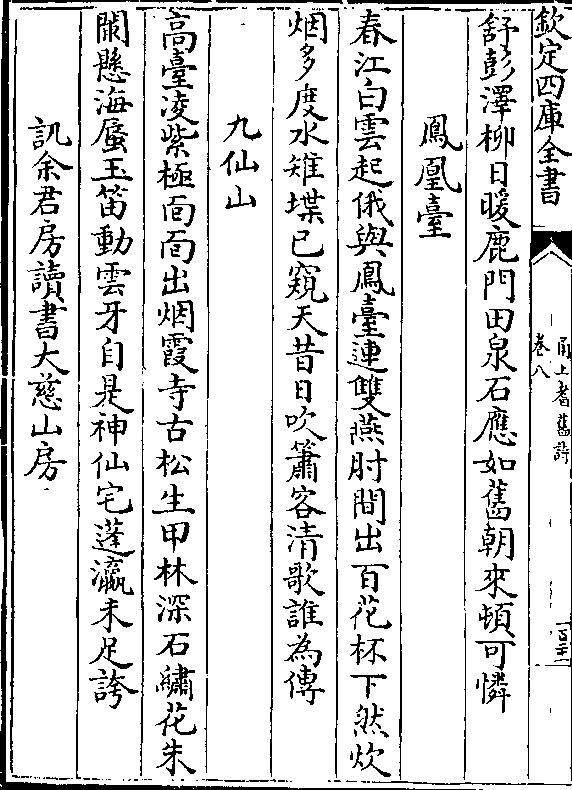 欽定四庫全書
甬上耆舊詩
卷八
舒彭澤柳日暖鹿門田泉石應如舊朝來頓可憐
鳳凰臺
春江白雲起俄與鳳臺連雙燕肘間出百花杯下然炊
烟多度水雉堞已窺天昔日吹簫客清歌誰為傳
九仙山
高臺凌紫極面面出烟霞寺古松生甲林深石繡花朱
闌懸海蜃玉笛動雲牙自是神仙宅蓬瀛未足誇
訊余君房讀書大慈山房